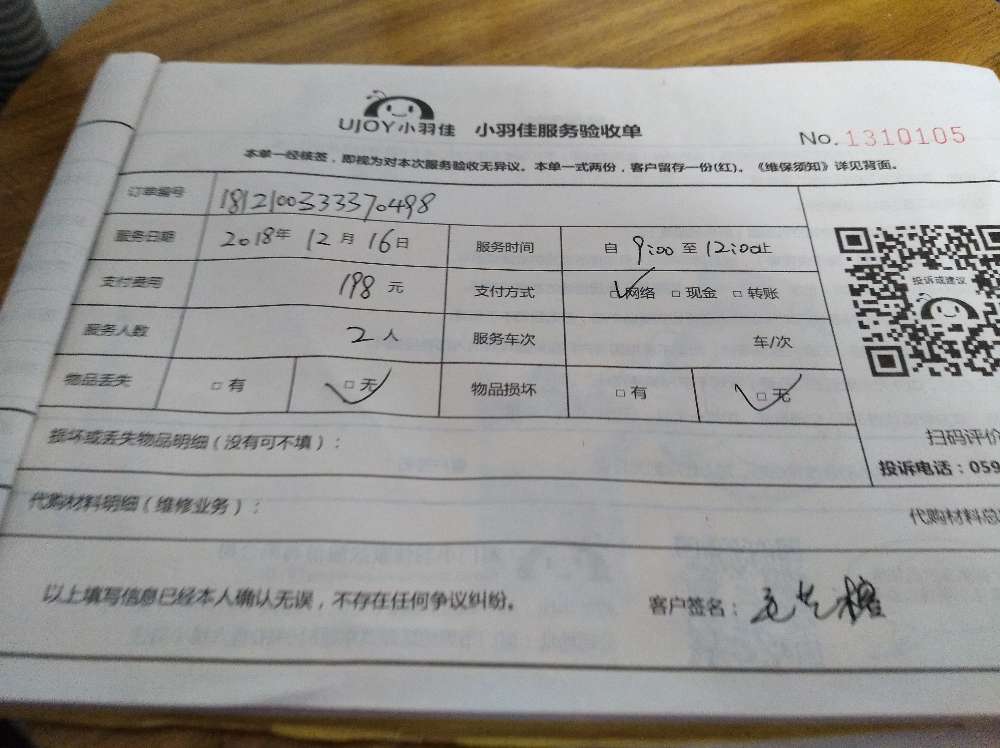 UJOY小羽佳 小羽佳服务验收单
No.1310105
本单一经核签，即视为对本次服务验收无异议。本单一式两份，客户留存一份(红)。《维保须知》详见背面。
订单编号 1812100333370498
服务日期 2018年 12月 16日 服务时间 自 9:00 至 12:00止
投诉或建议
支付费用 198 元 支付方式 □网络 □现金 □转账
服务人数 2 人 服务车次 车/次
物品丢失 □有 □无 物品损坏 □有 □无
损坏或丢失物品明细（没有可不填）：
扫码评价
投诉电话：059
代购材料明细（维修业务）：
代购材料总
以上填写信息已经本人确认无误，不存在任何争议纠纷。 客户签名：